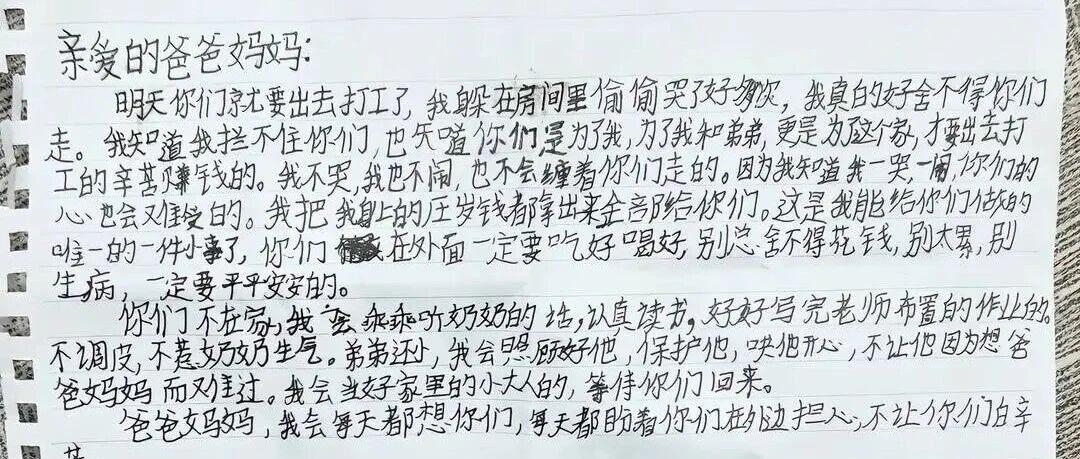 亲爱的爸爸妈妈:
明天你们就要出去打工了,我躲在房间里偷偷哭了好多次,我真的好舍不得你们
走。我知道我拦不住你们,也知道你们是为了我,为了我和弟弟,更是为了这个家,才要出去打
工的辛苦赚钱的。我不哭,我也不闹,也不会缠着你们走的。因为我知道我一哭,一闹,你们的
心也会难受的。我把我身上的压岁钱都拿出来全部给你们。这是我能给你们做的
唯一的一件小事了,你们在外面一定要吃好喝好,别总舍不得花钱,别太累,别
生病,一定要平平安安的。
你们不在家,我会乖乖听奶奶的话,认真读书,好好写完老师布置的作业的。
不调皮,不惹奶奶生气。弟弟还小,我会照顾好他,保护他,哄他开心,不让他因为想爸
爸妈妈而难过。我会当好家里的小大人的,等待你们回来。
爸爸妈妈,我会每天都想你们,每天都盼着你们在外边担心,不让你们白辛